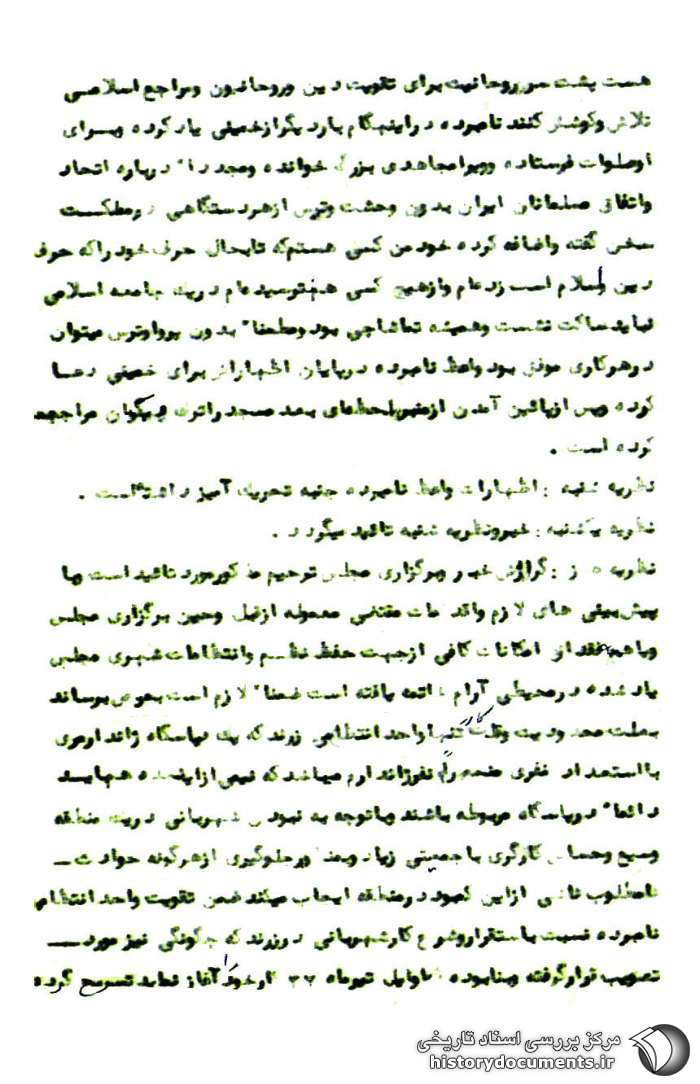 هست پشت سر روحانیت برای تقویت دین وروحانیون ومراجع اسلامی
تلاش وکوشش کنند نامبرده دراینهنگام باردیگرازخمینی یادکرده وبرای
اوصلوات فرستاده وویرامجاهدی بزرگ خوانده ومجددا" درباره اتحاد
واتفاق مسلمانان ایران بدون وحشت وترس ازهردستگاهی درمملکت
سخن گفته واضافه کرده خودمن کسی هستم که تابحال حرف خودراکه حرف
دین واسلام است زده‌ام وازهیچ کسی هم نترسیده‌ام دریک جامعه اسلامی
نبایدساکت نشست وهمیشه تماشاچی بود ومطمئنا" بدون پرواوترس میتوان
درهرکاری موفق بود واعظ نامبرده درپایان اظهاراتش برای خمینی دعا
کرده وپس ازپائین آمدن ازمنبرلحظه‌ای بعد مسجد راترک وبگوان مراجعه
کرده است .
نظریه شنبه : اظهارات واعظ نامبرده جنبه تحریک آمیز داشته‌است .
نظریه یکشنبه : خبرونظریه شنبه تائید میگردد .
نظریه ه ز : گزارش خبر وبرگزاری مجلس ترحیم مذکورمورد تائید است وبا
پیش بینی های لازم واقدامات مقتضی معموله ازقبل وحین برگزاری مجلس
وباهم فقدان امکانات کافی ازجهت حفظ نظم وانتظامات شهری مجلس
یادشده درمحیطی آرام خاتمه یافته است ضمنا" لازم است بعرض برساند
بعلت محدودیت وقلت کادر تنها واحد انتظامی زرند که یک پاسگاه ژاندارمری
بااستعداد نفری منحصراً نفرژاندارم میباشد که نیمی ازاینعده همبایــد
دائما" درپاسگاه مربوطه باشند وباتوجه به نبودن شهربانی دریک منطقه
وسیع وحساس کارگری باجمعیتی زیاد وبمنظورجلوگیری ازهرگونه حوادث
نامطلوب ناشی ازاین کمبود درمنطقه ایجاب میکند ضمن تقویت واحد انتظامی
نامبرده نسبت باستقراروشروع کارشهربانی درزرند که چگونگی نیز مورد
تصویب قرارگرفته وبنابوده تااوایل تیرماه ۳۷ کارخودرا آغاز نماید تسریع گرده
مرکز بررسی اسناد تاریخی
historydocuments.ir